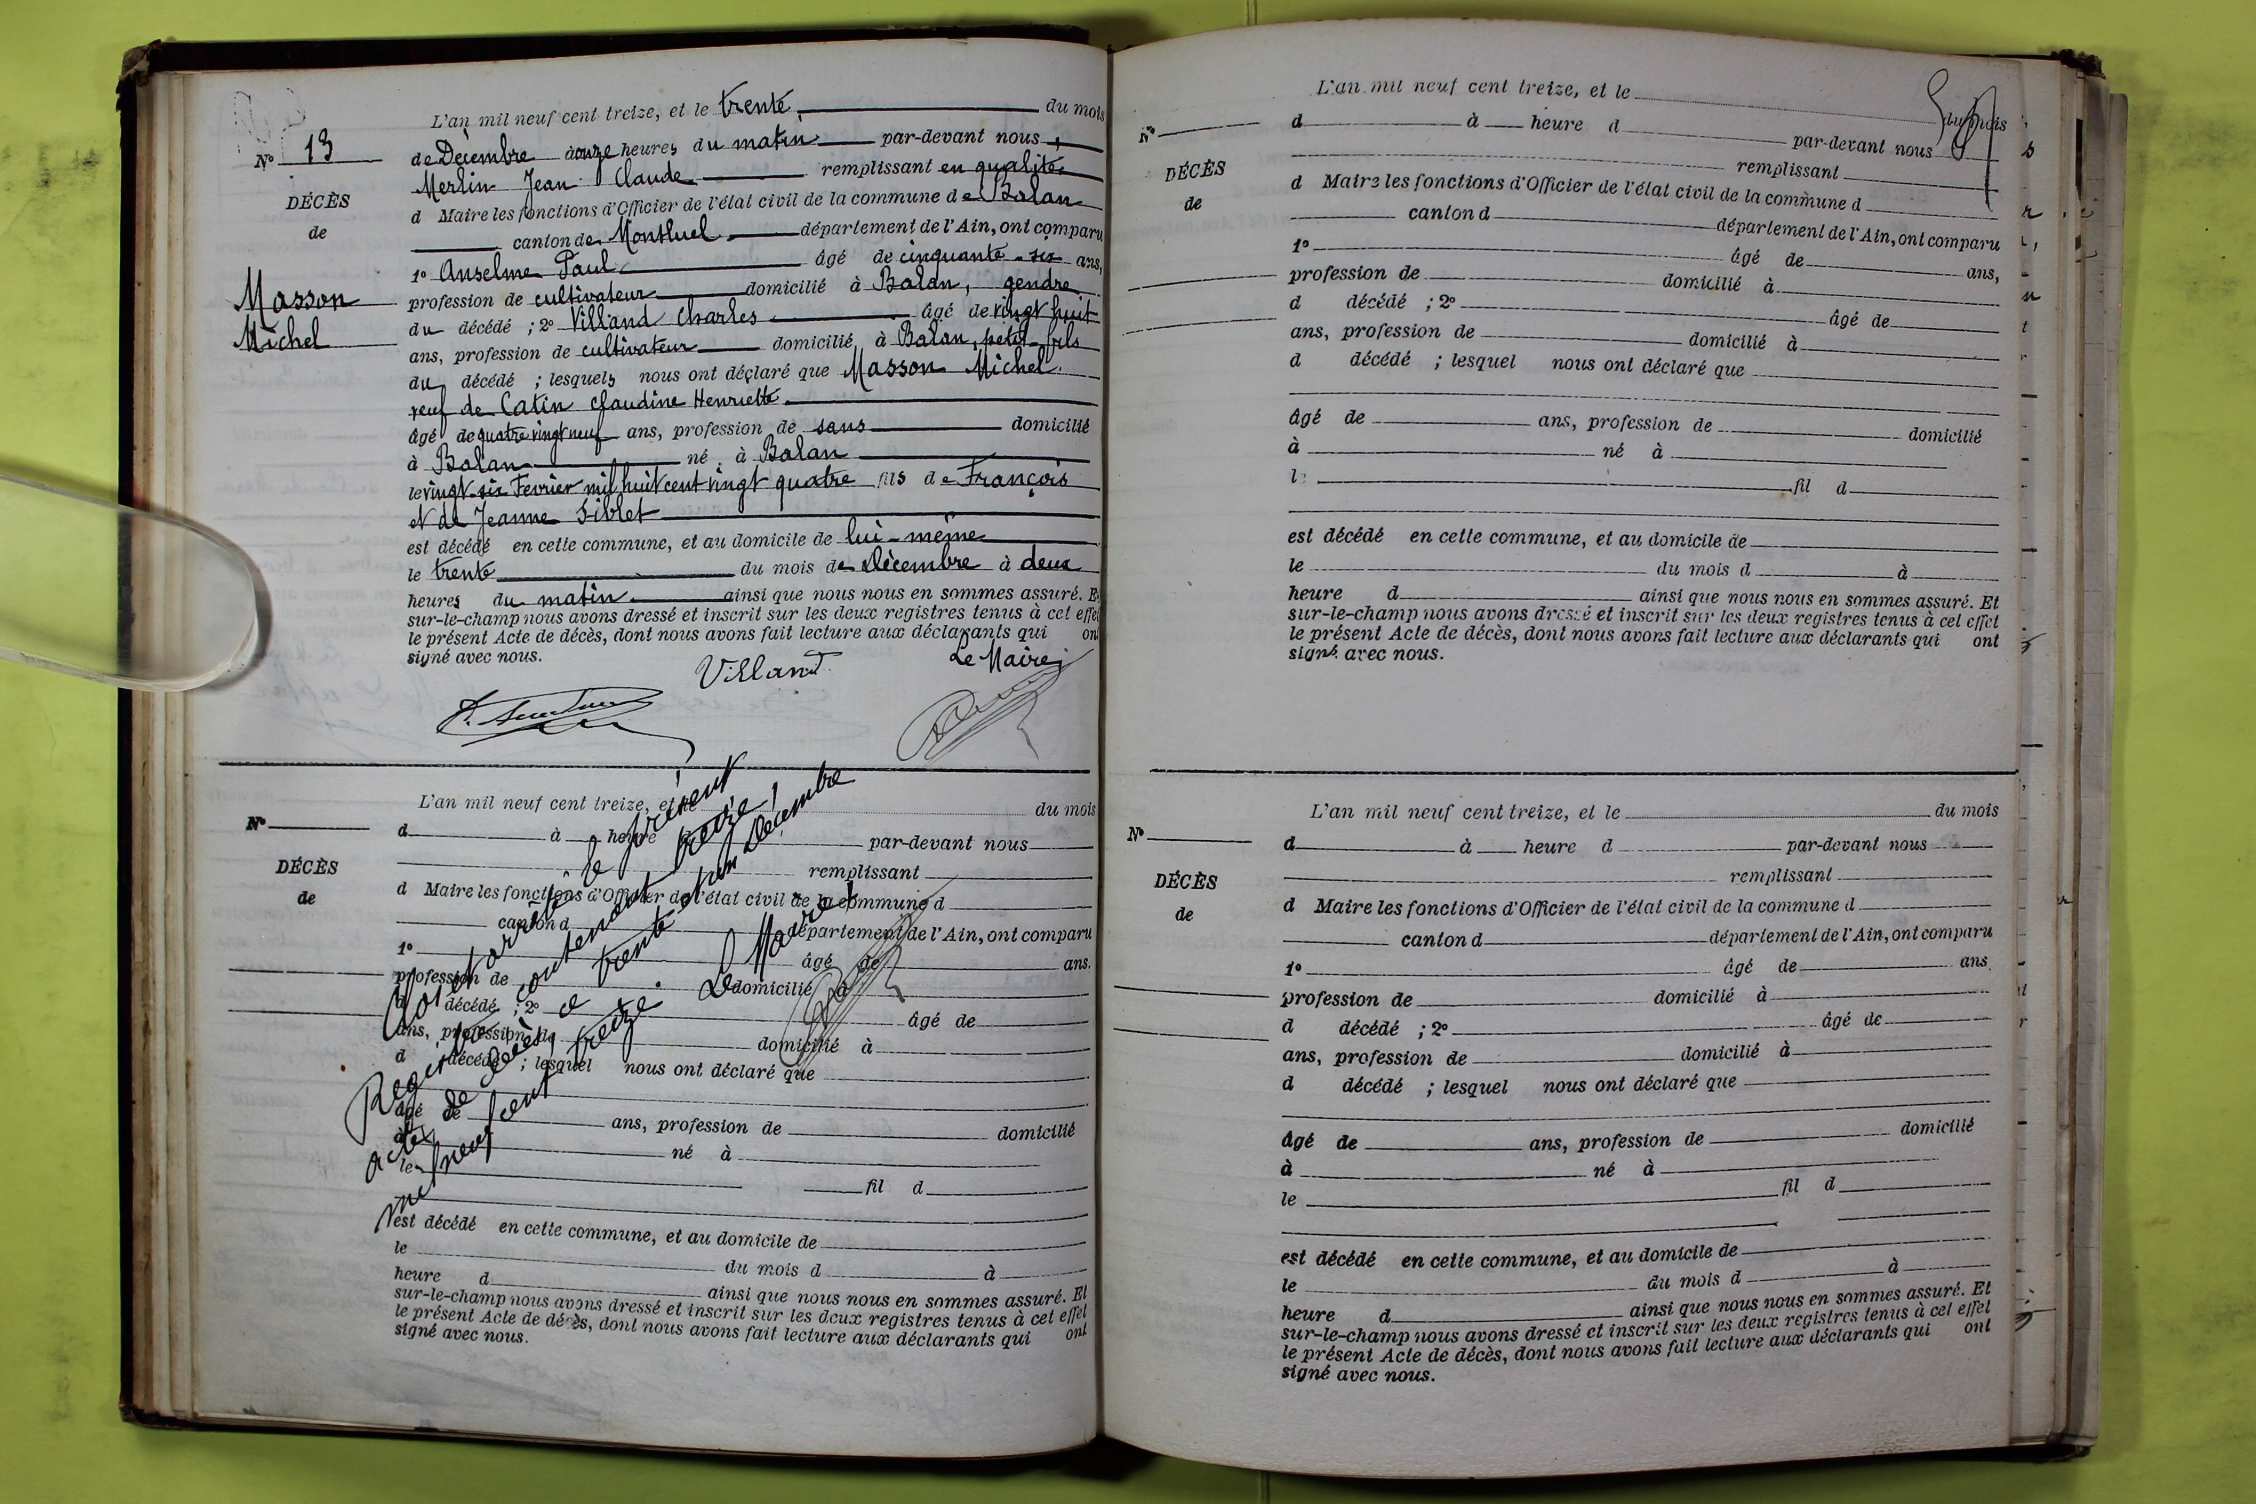 L'an mil neuf cent treize, et le trente du mois
N° 13
de Décembre à onze heures du matin par-devant nous,
Merlin Jean Claude remplissant en qualité
DÉCÈS
d Maire les fonctions d'Officier de l'état civil de la commune de Balan
de
canton de Montluel département de l'Ain, ont comparu
1° Anselme Paul âgé de cinquante-six ans,
Masson
profession de cultivateur domicilié à Balan, gendre
du décédé ; 2° Villand Charles âgé de vingt huit
Michel
ans, profession de cultivateur domicilié à Balan, petit-fils
du décédé ; lesquels nous ont déclaré que Masson Michel
veuf de Catin Claudine Henriette
âgé de quatre vingt neuf ans, profession de sans domicilié
à Balan né à Balan
le vingt-six Fevrier mil huit cent vingt quatre fils de François
et de Jeanne Siblet
est décédé en cette commune, et au domicile de lui-même
le trente du mois de Décembre à deux
heures du matin ainsi que nous nous en sommes assuré. Et
sur-le-champ nous avons dressé et inscrit sur les deux registres tenus à cet effet
le présent Acte de décès, dont nous avons fait lecture aux déclarants qui ont
signé avec nous.
Villand
Le Maire
L'an mil neuf cent treize, et le du mois
N°
d à heure d par-devant nous
remplissant
DÉCÈS
d Maire les fonctions d'Officier de l'état civil de la commune d
de
canton d département de l'Ain, ont comparu
1° âgé de ans.
profession de domicilié à
d décédé ; 2° âgé de
ans, profession de domicilié à
d décédé ; lesquel nous ont déclaré que
âgé de ans, profession de domicilié
à né à
le fil d
est décédé en cette commune, et au domicile de
le du mois d à
heure d ainsi que nous nous en sommes assuré. Et
sur-le-champ nous avons dressé et inscrit sur les deux registres tenus à cet effet
le présent Acte de décès, dont nous avons fait lecture aux déclarants qui ont
signé avec nous.
Clos et arrêté le présent
Registre contenant treize
actes de décès, ce trente et un Décembre
mil neuf cent treize.
Le Maire
L'an mil neuf cent treize, et le du mois
N°
d à heure d par-devant nous
remplissant
DÉCÈS
d Maire les fonctions d'Officier de l'état civil de la commune d
de
canton d département de l'Ain, ont comparu
1° âgé de ans,
profession de domicilié à
d décédé ; 2° âgé de
ans, profession de domicilié à
d décédé ; lesquel nous ont déclaré que
âgé de ans, profession de domicilié
à né à
l fil d
est décédé en cette commune, et au domicile de
le du mois d à
heure d ainsi que nous nous en sommes assuré. Et
sur-le-champ nous avons dressé et inscrit sur les deux registres tenus à cet effet
le présent Acte de décès, dont nous avons fait lecture aux déclarants qui ont
signé avec nous.
L'an mil neuf cent treize, et le du mois
N°
d à heure d par-devant nous
remplissant
DÉCÈS
d Maire les fonctions d'Officier de l'état civil de la commune d
de
canton d département de l'Ain, ont comparu
1° âgé de ans
profession de domicilié à
d décédé ; 2° âgé de
ans, profession de domicilié à
d décédé ; lesquel nous ont déclaré que
âgé de ans, profession de domicilié
à né à
le fil d
est décédé en cette commune, et au domicile de
le du mois d à
heure d ainsi que nous nous en sommes assuré. Et
sur-le-champ nous avons dressé et inscrit sur les deux registres tenus à cet effet
le présent Acte de décès, dont nous avons fait lecture aux déclarants qui ont
signé avec nous.